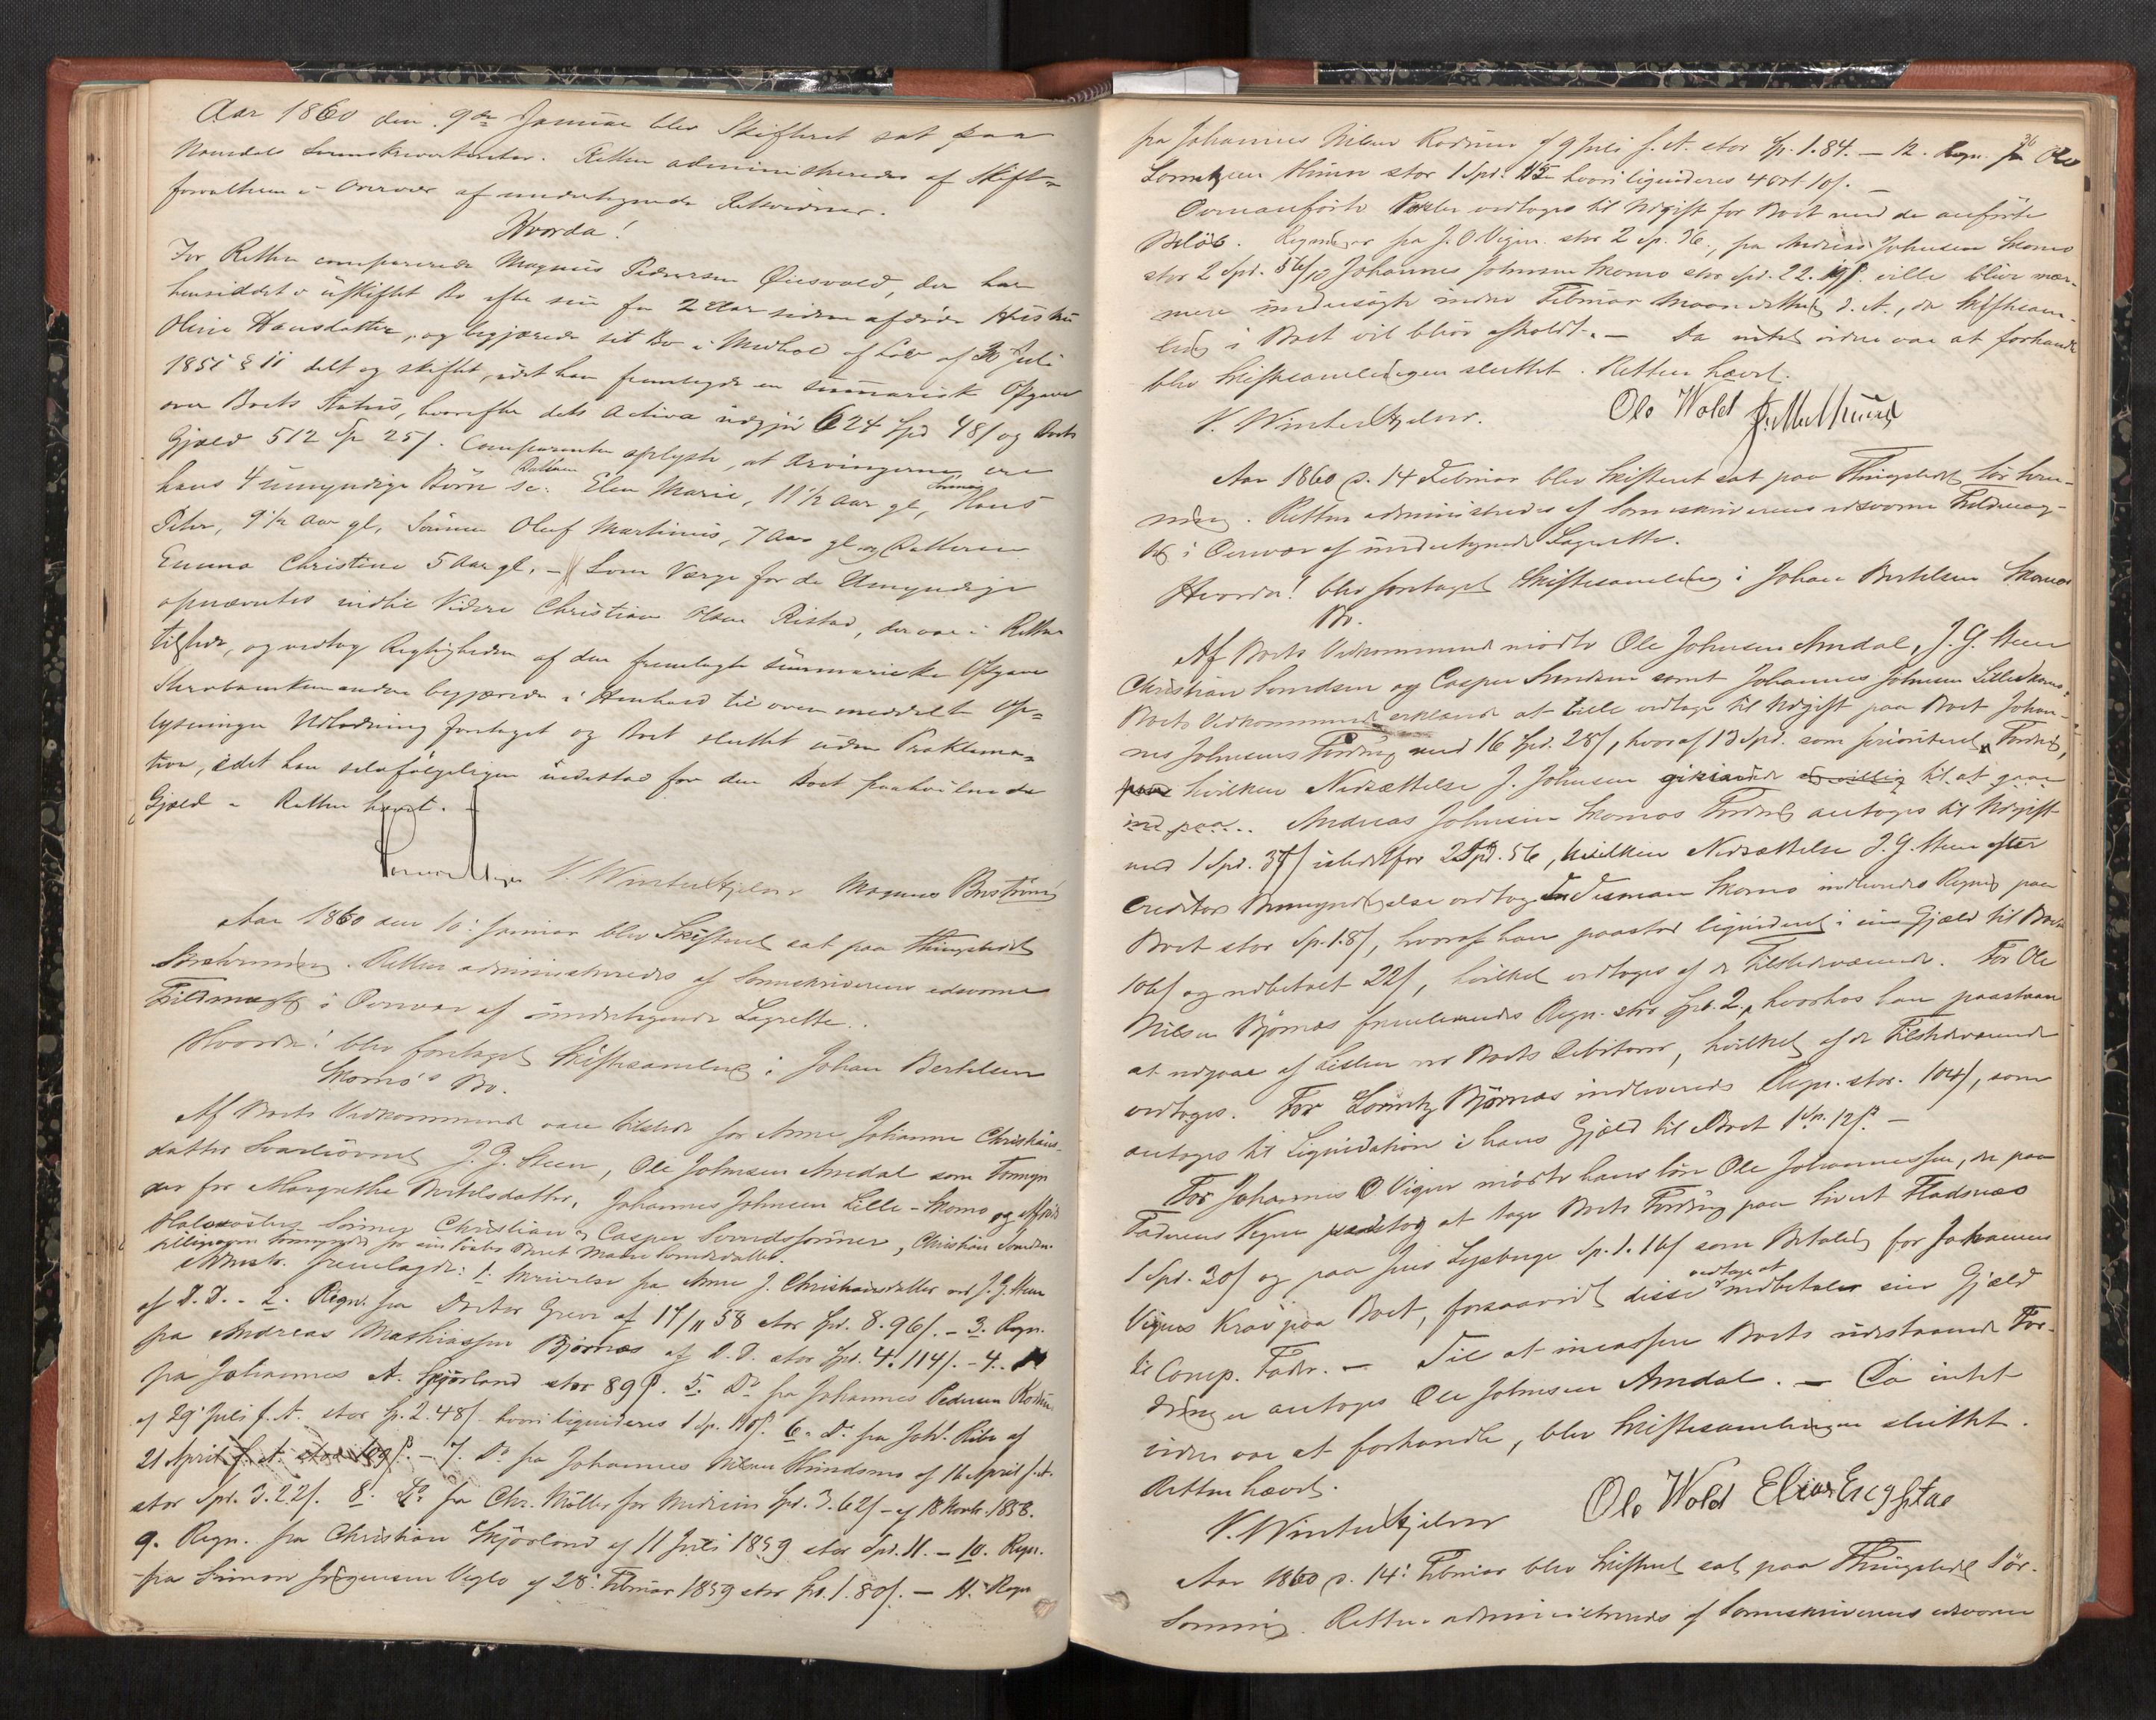 Aar 1860 den 9de Januar blev Skifteret sat paa
Namdals Sorenskriverkontor. Retten administreredes af Skifte=
forvalteren i Overvær af undertegnede Retsvidner.
Hvorda!
For Retten comparerede Magnus Pedersen Øiesvold, der har
hensiddet i uskiftet Bo efter sin for 2 Aar siden afdøde Hustru
Oline Hansdatter, og begjærede sit Bo i Medhold af Lov af 30 Juli
1851 § 11 delt og skiftet, idet han fremlagde en summarisk Opgave
over Boets Status, hvorefter dets Activa udgjør 624 Spd 48 s og Boets
Gjæld 512 Sp 25 s. Comparenten oplyste, at Arvingerne ere
hans 4 umyndige Børn se: Datteren Elen Marie, 11½ Aar gl, Sønnen Hans
Peter, 9½ Aar gl, Sønnen Oluf Martinus, 7 Aar gl og Datteren
Emma Christine 5 Aar gl. – Som Værge for de Umyndige
opnævntes indtil Videre Christian Ristad, der var i Retten
tilstede, og vedtog Rigtigheden af den fremlagte summariske Opgave
begjærede i Henhold til oven meddelte Op=
lysninger Udlodning foretaget og Boet sluttet uden Proklama=
tion, idet han selvfølgeligen indestod for den Boet paahvilende
Gjæld – Retten hævet.
V. Winter Hjelm Magnus
Aar 1860 den 10: Januar blev Skifteret sat paa Thingstedet
. Retten administreredes af Sorenskriverens edsvorne
Fuldmægtig i Overvær af undertegnede Lagrette.
Hvorda! blev foretaget Skiftesamling i Johan Bertelsen
Skomo's Bo.
Af Boets Vedkommende vare tilstede for Anne Johanne Christians-
datter J. G. Steen, Ole Johnsen Amdal som Formyn
der for Margrethe Bertelsdatter, Johannes Johnsen Lille-Skomo og Afdøde
Halvsøsters Sønner Christian og Casper Svendssønner, Christian Svendsen
tilligemed Formynder for sin Søster Beret Marie Svendsdatter.
fremlagde: 1. Skrivelse fra Anne J. Christiansdatter ved J. G. Steen
af D. D. – 2. Regn. fra Doctor Greve af 17/11 58 stor Spd. 8. 96 s. – 3. Regn.
fra Andreas Mathiassen Bjørnes af D. D. stor Spd. 4. 114 s. – 4.
fra Johannes A. Skjørland stor 89 s. 5. Do fra Johannes Pedersen
af 29 Juli f. A. stor Sp. 2. 48 s – hvori liquideres 1 Sp. 110 s. 6. Do fra Johs. Ribe af
21 April f. A. stor 109 s. – 7. Do fra Johannes Nilsen af 16 April f. A.
stor Spd. 3. 22 s. 8. Do fra Chr. Müller for Medicin Spd. 3. 62 s – af 18 Novb. 1858.
9. Regn. fra Christian Skjørland af 11 Juli 1859 stor Spd. 11. – 10. Regn.
fra Simon Jørgensen Veglo af 28: Februar 1859 stor Sp. 1. 80 s. – 11. Regn
36
fra Johannes Nilsen Rodum af 9 Juli f. A. stor Sp. 1. 84. – 12. Regn. fra Ole
Lorntzen stor 1 Spd. 15 hvori liquideres 4 ort 10 s. –
Ovenanførte Poster vedtoges til Udgift for Boet med de anførte
Beløb. Regninger fra J. O. Vigen stor 2 Sp. 36, fra Andreas Johnsen Skomo
stor 2 Spd. 56 s, Johannes Johnsen Skomo stor Spd. 22. 19 s ville blive nær-
mere undersøgte inden Februar Maaneds d. A., da Skiftesam-
ling i Boet vil blive afholdt. – Da intet videre var at forhandle
blev Skiftesamlingen sluttet. Retten hævet.
V. Winter Hjelm. Ole Wold
Aar 1860 d. 14 Februar blev Skifteret sat paa Thingstedet Sør Som-
ning. Retten administredes af Sorenskriverens edsvorne Fuldmæg-
tig i Overvær af undertegnede Lagrette.
Hvorda! blev foretaget Skiftesamling i Johan Bertelsen Skomos
Bo.
Af Boets Vedkommende mødte Ole Johnsen Amdal, J. G. Steen
Christian Svendsen og Casper Svendsen samt Johannes Johnsen Lilleskomo.
Boets Vedkommende erklærede at ville vedtage til Udgift paa Boet Johan-
nes Johnsens Fordring med 16 Spd. 28 s, hvoraf 13 Spd. som prioriteret Fordring,
paa hvilken Nedsættelse J. Johnsen til at gaae
ind paa. Andreas Johnsen Skomos Fordring antoges til Udgift
med 1 Spd. 37 s istedetfor 2 Spd. 56, hvilken Nedsættelse J. G. Steen efter
Creditors Bemyndigelse vedtog. Skomo indleverede Regning paa
Boet stor Sp. 1. 8 s, hvoraf han paastod liquideret i sin Gjæld til Boet
106 s og udbetalt 22 s, hvilket vedtoges af de Tilstedeværende. For Ole
Nilsen Bjørnes fremlevertes Regn. stor Spd. 2, hvorhos han paastaaer
at udgaae af Listen over Boets Debitorer, hvilket af de Tilstedeværende
vedtoges. For Lorntz Bjørnes indleveredes Regn. stor. 104 s, som
antoges til Liquidation i hans Gjæld til Boet 1 Sp. 12 s. –
For Johannes O. Vigen mødte hans Søn Ole Johannessen, der paa
Faderens Vegne vedtog at tage Boets Fordring paa Sivert Fladsnæs
1 Spd. 30 s og paa Jens Lysberge Sp. 1. 16 s som Betaling for Johannes
Vigens Krav paa Boet, forsaavidt disse vedtage at indbetale sin Gjæld
til Comp. Fader. – Til at incassere Boets udestaaende For-
dringer antoges Ole Johnsen Amdal. – Da intet
videre var at forhandle, blev Skiftesamlingen sluttet.
Retten hævet.
V. Winter Hjelm Ole Wold Elias
Aar 1860 d. 14: Februar blev Skifteret sat paa Thingstedet Sør-
Somning. Retten administreredes af Sorenskriverens edsvorne